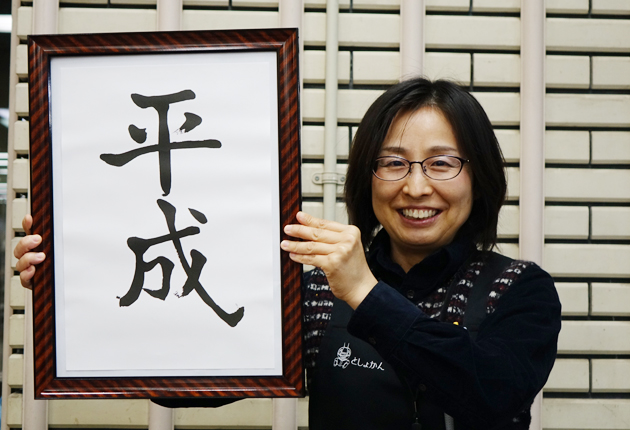 平成
としょかん